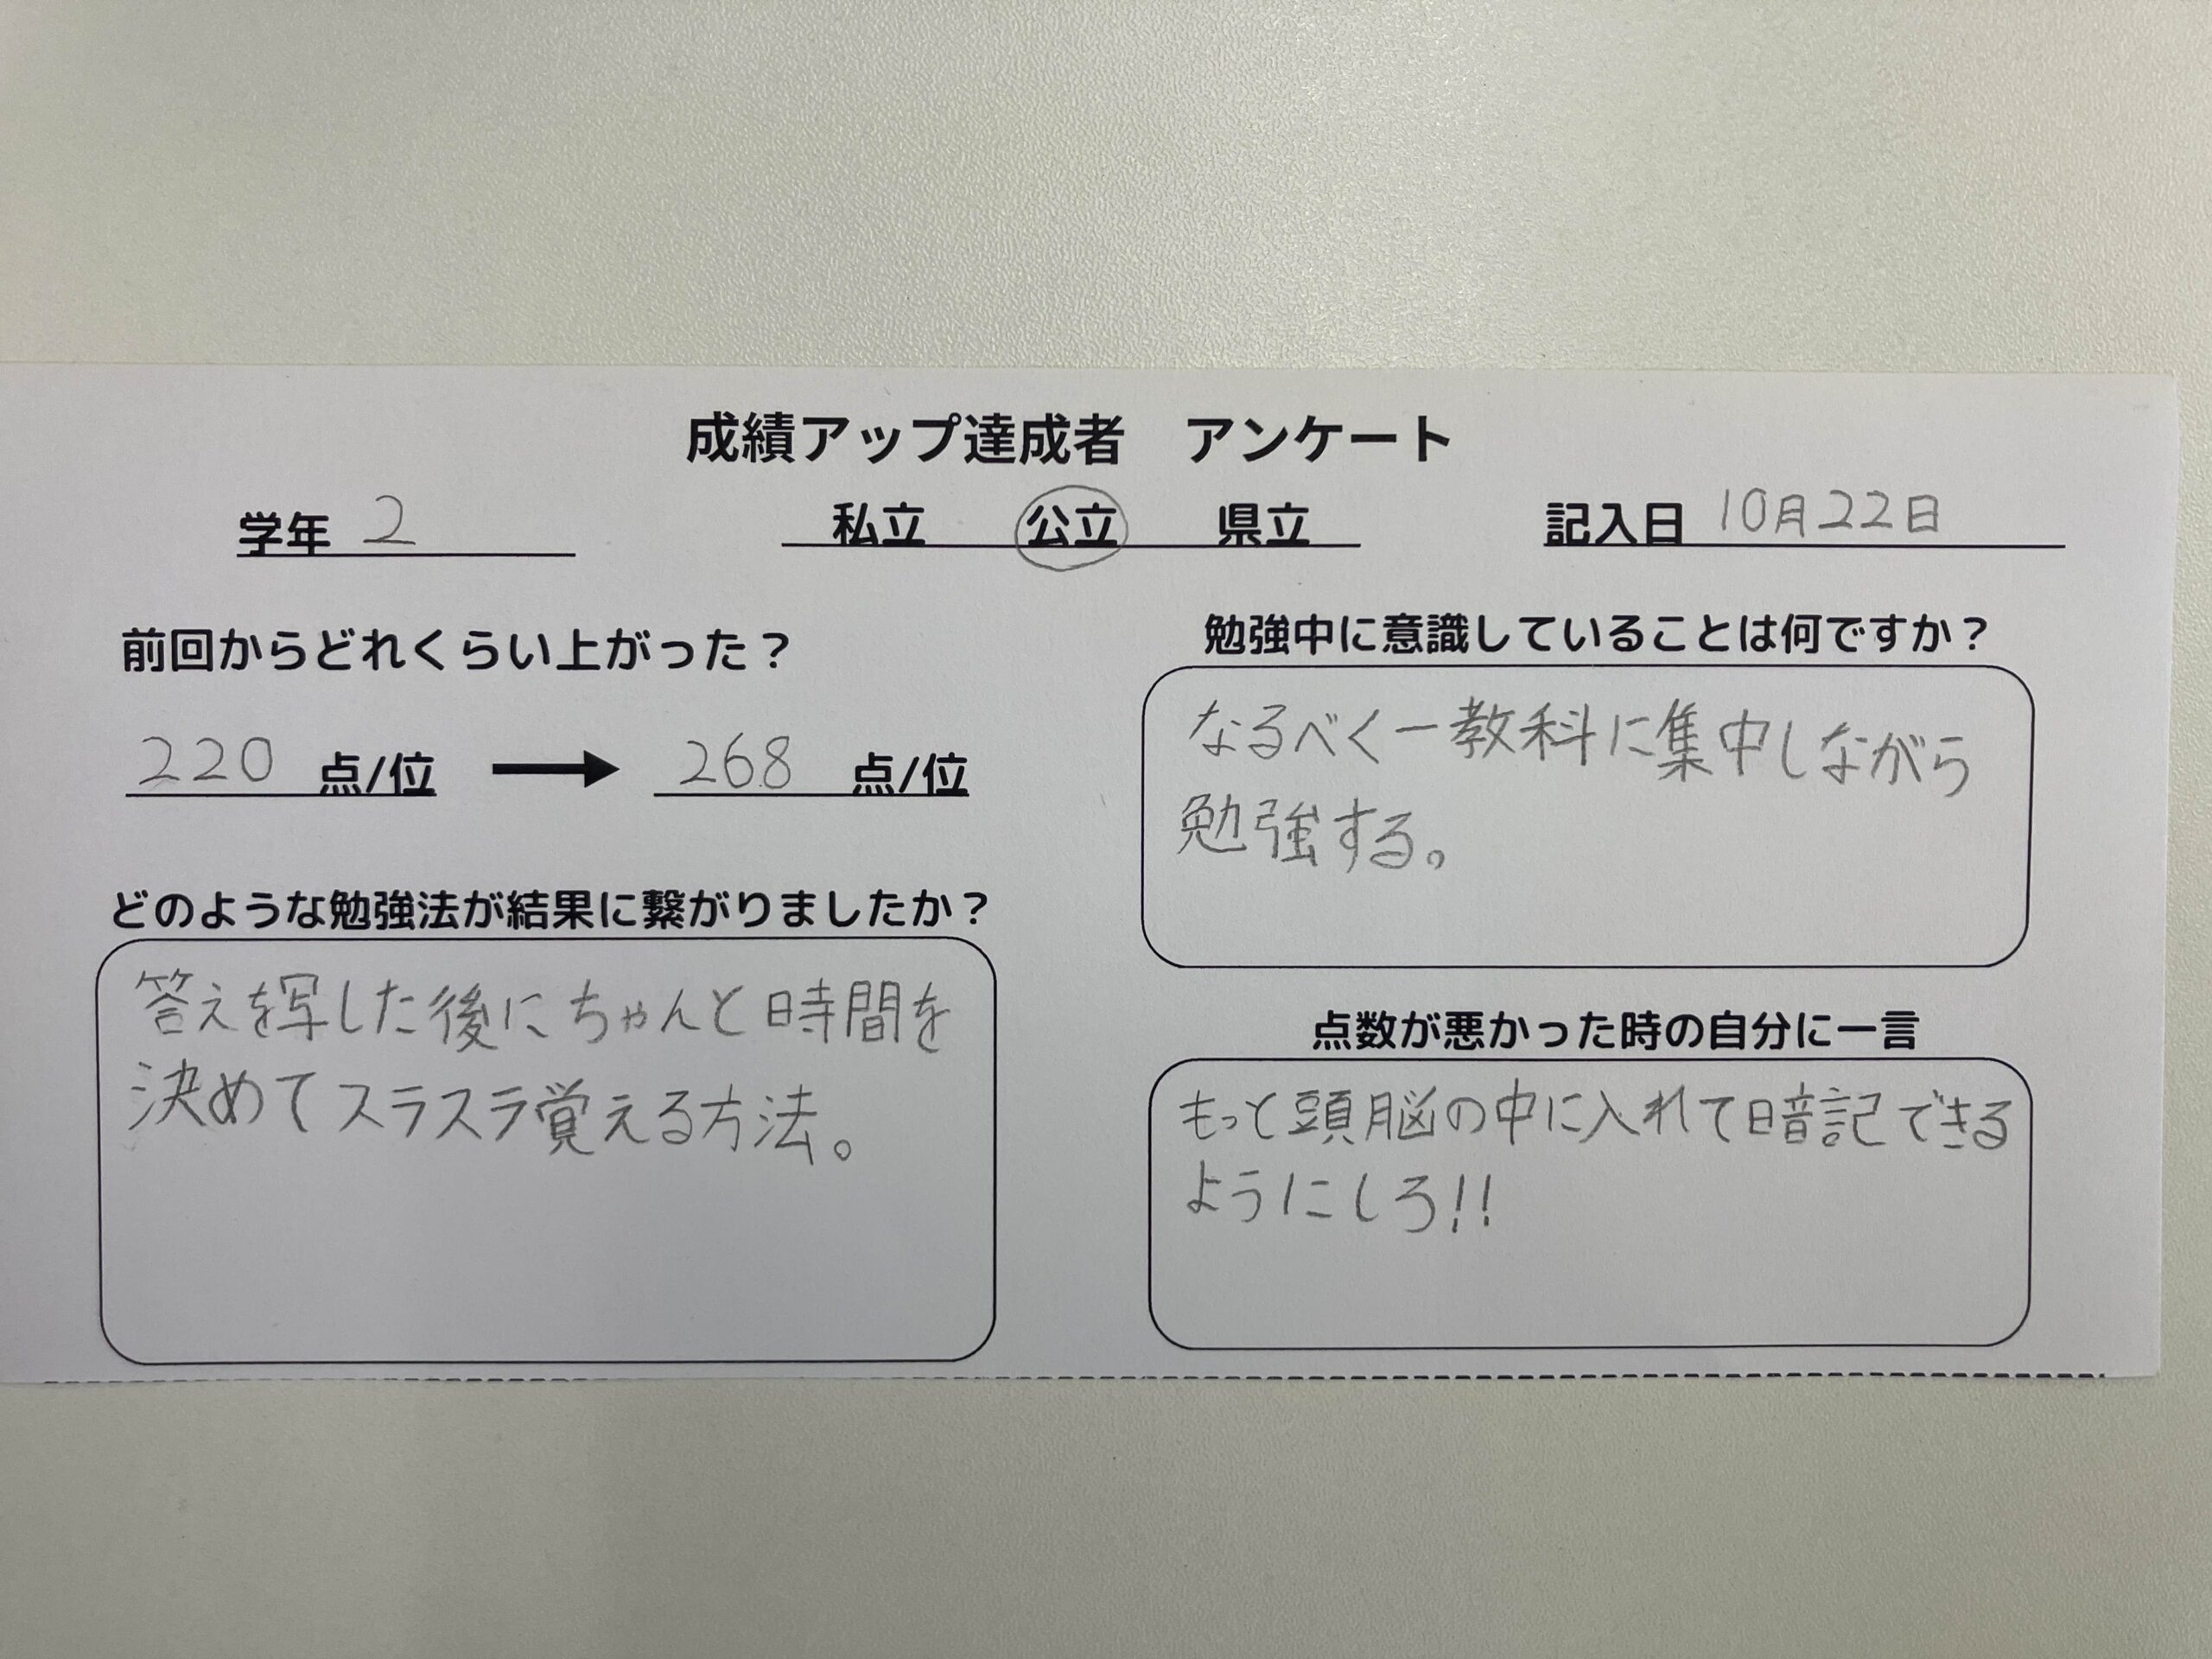 成績アップ達成者　アンケート
学年 2
私立 公立 県立
記入日 10月22日
前回からどれくらい上がった？
220 点/位 → 268 点/位
どのような勉強法が結果に繋がりましたか？
答えを写した後にちゃんと時間を
決めてスラスラ覚える方法。
勉強中に意識していることは何ですか？
なるべく一教科に集中しながら
勉強する。
点数が悪かった時の自分に一言
もっと頭脳の中に入れて暗記できる
ようにしろ!!